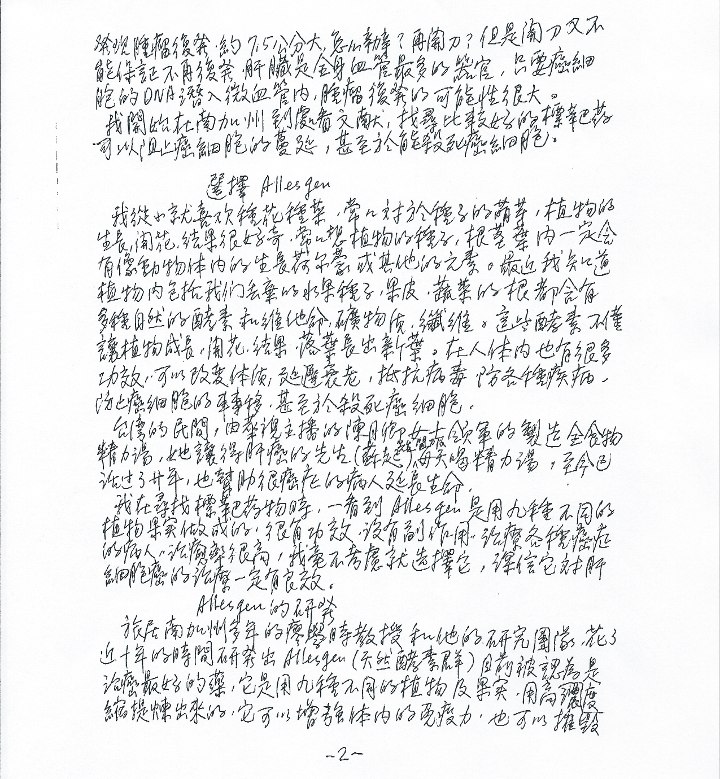 發現腫瘤復發, 約7.5公分大, 怎么辦? 再開刀? 但是開刀又不
能保証不再復發, 肝臟是全身血管最多的器官, 只要癌細
胞的DNA潛入微血管內, 腫瘤復發的可能性很大。
我開始在南加州到處看文献, 找尋比較好的標靶药
可以阻止癌細胞的蔓延, 甚至於能殺死癌細胞。
選擇 Allesgen
我從小就喜欢種花種菜, 常常対於種子的萌芽, 植物的
生長, 開花, 結果很好奇, 常常想植物的種子, 根莖葉內一定会
有像動物体內的生長荷尔蒙或其他的元素。最近我知道
植物內包括我们丢棄的水果種子, 果皮, 蔬菜的根都含有
多種自然的酵素和維他命, 礦物质, 纖維。這些酵素不僅
讓植物成長, 開花, 結果, 落葉長出新葉。在人体內也有很多
功效, 可以改变体质, 延遲衰老, 抵抗病毒, 防各種疾病,
防止癌細胞的轉移, 甚至於殺死癌細胞。
台湾的民間, 由華視主播的陳月卿女士領軍的製造全食物
精力湯, 她讓得肝癌的先生(蘇起)每天喝精力湯, 至今已
活过了廿年, 也幫助很癌症的病人延長生命。
我在尋找標靶药物時, 一看到 Allesgen 是用九種不同的
植物果実做成的, 很有功效, 沒有副作用, 治療各種癌症
的病人, 治癒率很高, 我毫不考慮就选擇它, 深信它対肝
細胞癌的治療一定有良效。
Allesgen 的研発
旅居南加州多年的時教授和他的研究團隊, 花了
近十年的時間研発出 Allesgen (天然酵素群) 目前被認為是
治癌最好的藥, 它是用九種不同的植物及果実, 用高濃度
縮提煉出來的, 它可以增強体內的免疫力, 也可以摧毀
-2-